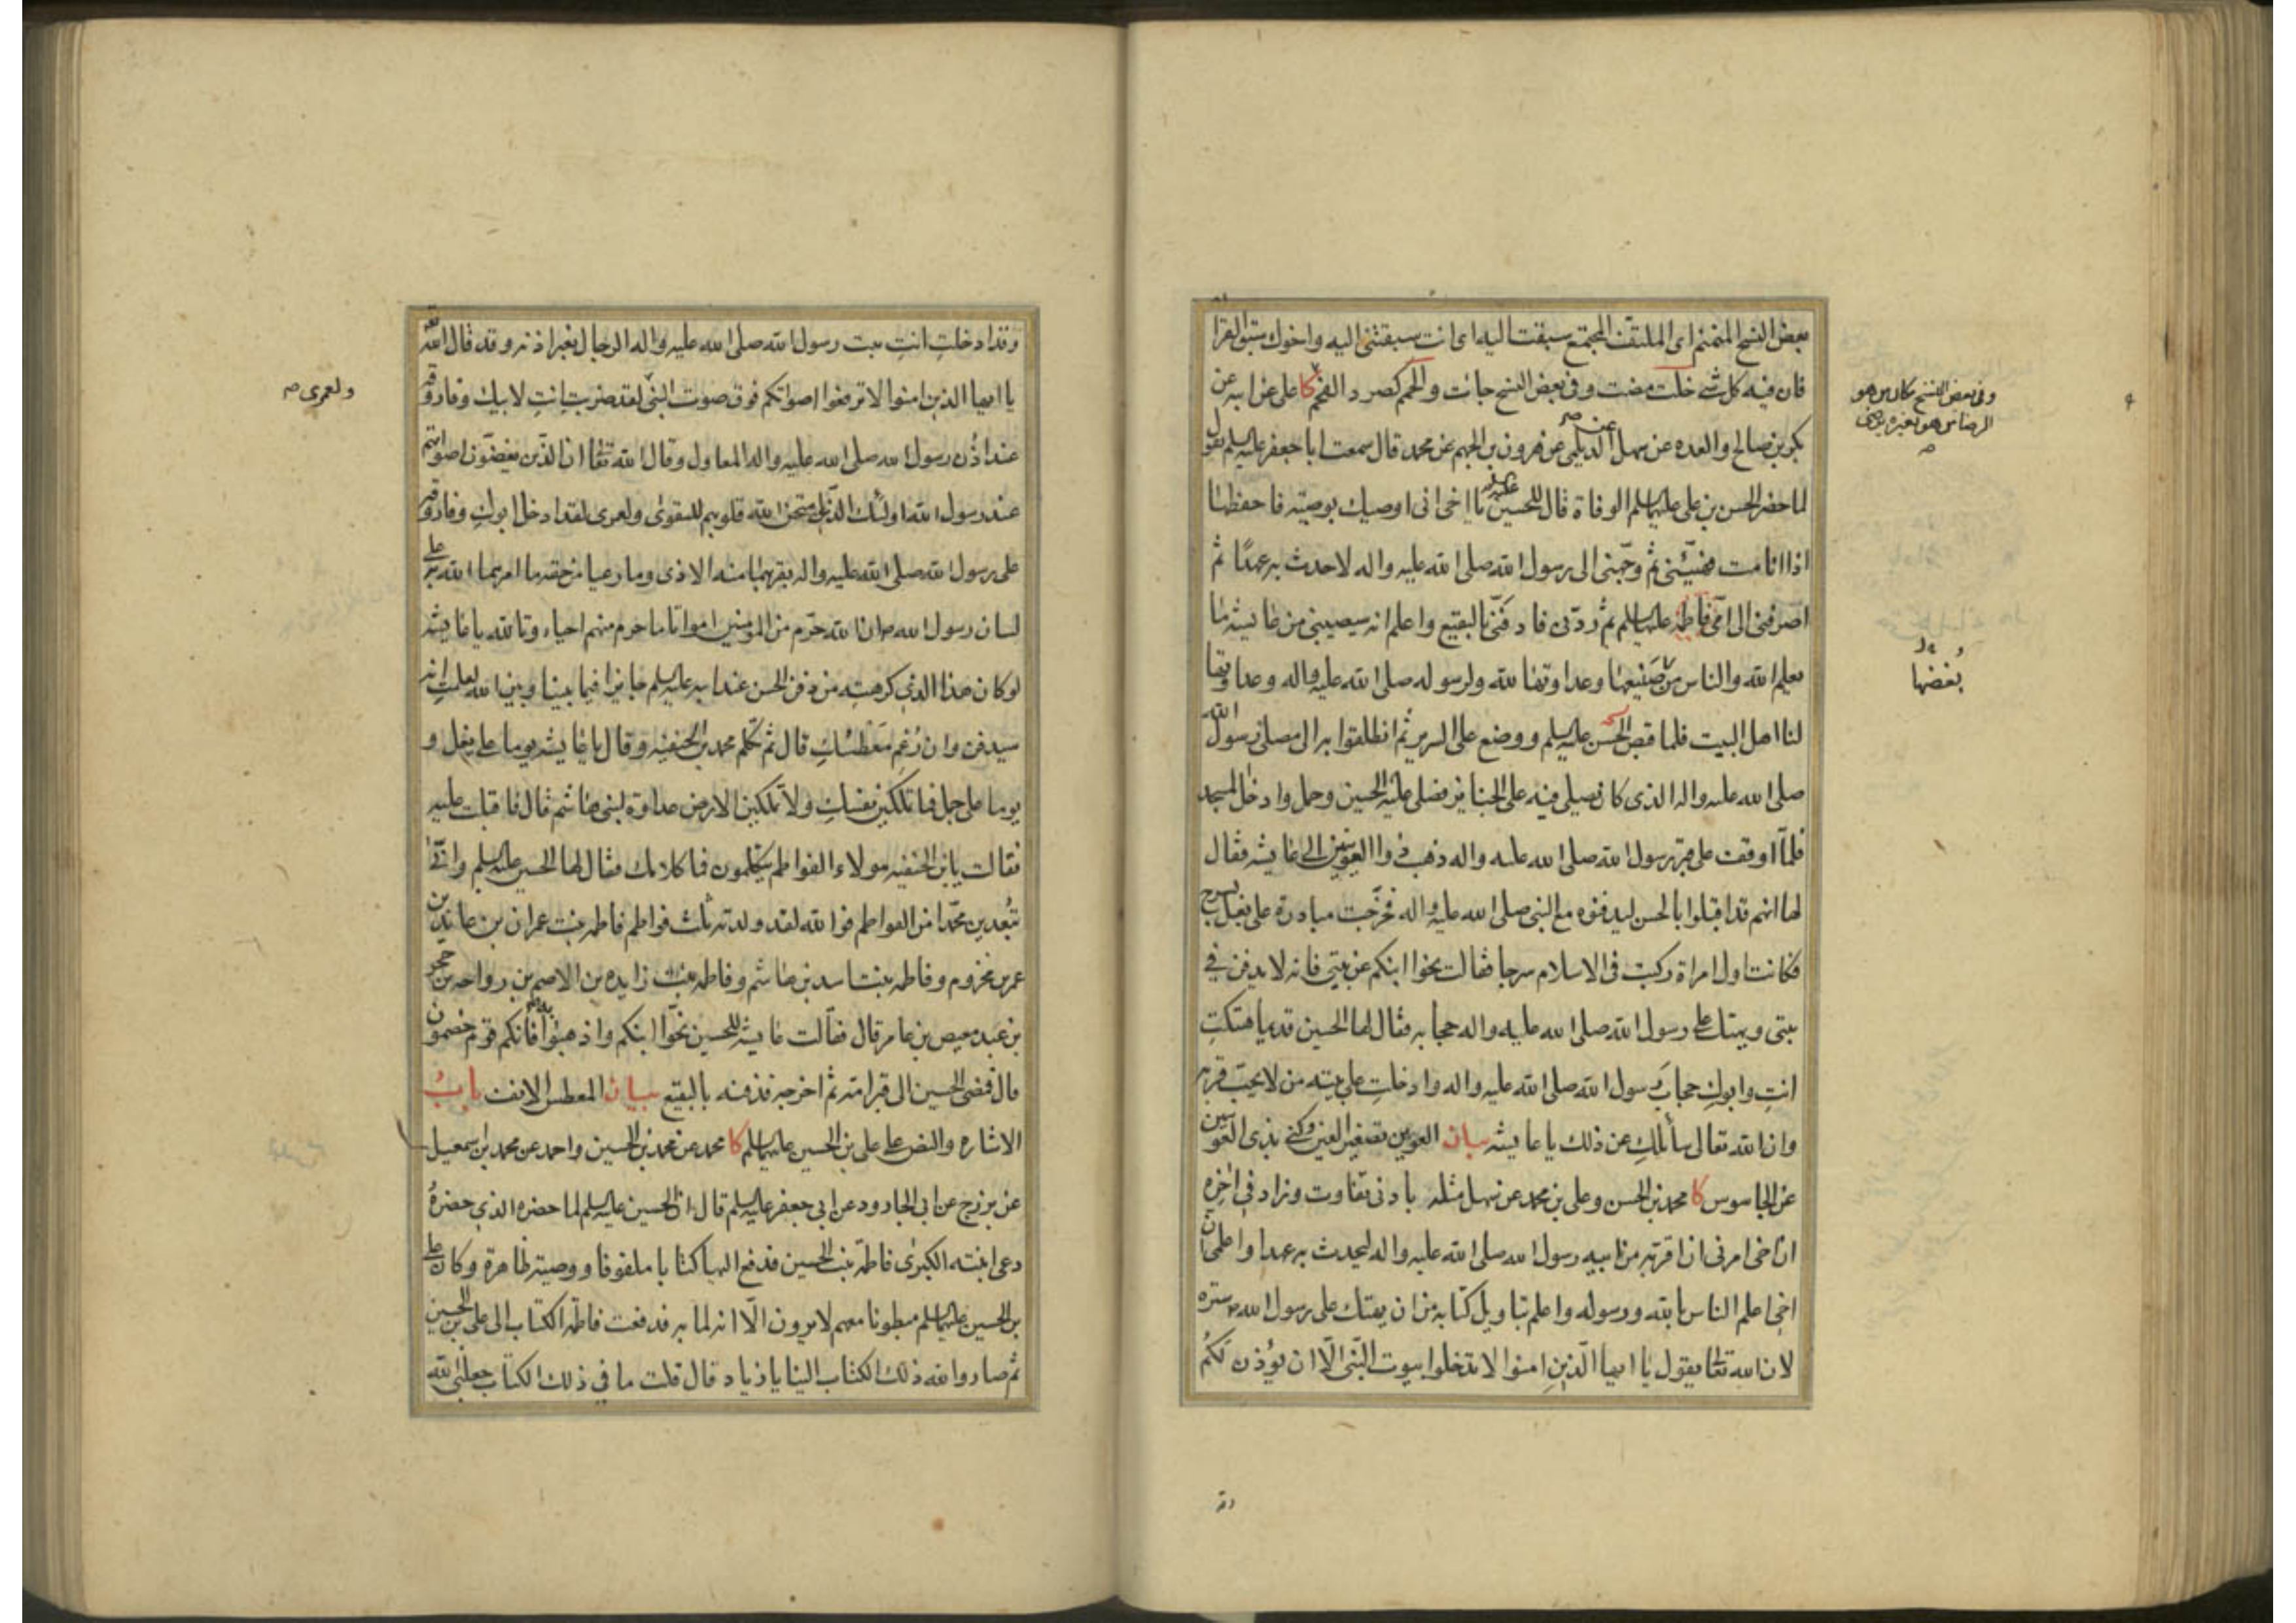 بعض النسخ المنمنم اى الملتفّ المجتمع سبقت اليه اى انت سبقتنى اليه واخوك سبق القرا
فان فيه كل شىء خلت مضت وفى بعض النسخ جائت والحم كصرد الفحم كا على عن ابيه عن
بكر بن صالح والعده عن سهل عن الديلمى عن هرون بن الجهم عن محمد قال سمعت ابا جعفر عليه السلم يقول
لما حضر الحسن بن على عليهما السلم الوفاة قال للحسين يا اخى انى اوصيك بوصيّة فاحفظها
اذا انا مت فهيّئنى ثم وجّهنى الى رسول الله صلى الله عليه واله لاحدث به عهدًا ثم
اصرفنى الى امّى فاطمة عليها السلم ثم ردّنى فادفنّى بالبقيع واعلم انه سيصيبنى من عايشه ما
يعلم الله والناس من صنيعها وعداوتها لله ولرسوله صلى الله عليه واله وعداوتها
لنا اهل البيت فلما قبض الحسن عليه السلم ووضع على السرير ثم انطلقوا به الى مصلى رسول الله
صلى الله عليه واله الذى كان يصلى فيه على الجنايز فصلى عليه الحسين وحمل وادخل المسجد
فلمّا اوقف على قبر رسول الله صلى الله عليه واله ذهب ذو العوينين الى عايشه فقال
لها انهم قد اقبلوا بالحسن ليدفنوه مع النبى صلى الله عليه واله فخرجت مبادرة على بغل بسرج
فكانت اول امراة ركبت فى الاسلام سرجا فقالت نحوا ابنكم عن بيتى فانه لا يدفن فى
بيتى ويهتك على رسول الله صلى الله عليه واله حجابه فقال لها الحسين قديما هتكتِ
انتِ وابوكِ حجابَ رسول الله صلى الله عليه واله وادخلتِ على بيته من لا يحبّ قربه
وان الله تعالى سائلكِ عن ذلك يا عايشه بيان العوين تصغير العين وكنى بذى العوينين
عن الجاسوس كا محمد بن الحسن وعلى بن محمد عن سهل مثله بادنى تفاوت وزاد فى اخره
ان اخى امرنى ان اقربه من ابيه رسول الله صلى الله عليه واله ليحدث به عهدا واعلمى ان
اخى اعلم الناس بالله ورسوله واعلم بتاويل كتابه من ان يهتك على رسول الله ستره
لان الله تعالى يقول يا ايها الّذين امنوا لا تدخلوا بيوت النّبى الّا ان يؤذن لكُم
وفى بعض النسخ
بُغضها
وقد ادخلتِ انتِ بيت رسول الله صلى الله عليه واله الرجال بغير اذنه وقد قال الله
يا ايها الذين امنوا لا ترفعوا اصواتكم فوق صوت النبى لقد ضربتِ انتِ لابيك وفاروقه
عند اذُن رسول الله صلى الله عليه واله المعاول وقال الله تعالى ان الذّين يغضّون اصواتهم
عند رسول الله اولئك الّذين امتحن الله قلوبهم للتقوىٰ ولعمرى لقد ادخل ابوكِ وفاروقه
على رسول الله صلى الله عليه واله بقربهما منه الاذى وما رعيا من حقه ما امرهما الله به على
لسان رسول الله ص ان الله حرّم من المؤمنين امواتا ما حرم منهم احياء وتالله يا عايشه
لو كان هذا الذى كرهتِه من دفن الحسن عند ابيه عليه السلم جايزا فيما بيننا وبين الله لعلمتِ انه
سيدفن وان رُغِم مَعْطسُكِ قال ثم تكلّم محمد بن الحنفيه وقال يا عايشه يوما على بغل و
يوما على جمل فما تملكين نفسكِ ولا تملكين الارض عداوة لبنى هاشم قال فاقبلت عليه
فقالت يا بن الحنفيه هولاء الفواطم يتكلمون فما كلامك فقال لها الحسين عليه السلم وانّى
تبُعدين محمّدا من الفواطم فوالله لقد ولدته ثلث فواطم فاطمه بنت عمران بن عايذ بن
عمر بن مخزوم وفاطمه بنت اسد بن هاشم وفاطمه بنت زايدة بن الاصم بن رواحه بن حجر
بن عبد معيص بن عامر قال فقالت عايشه للحسين نحّوا ابنكم واذهبوا به فانكم قوم خصمون
قال فمضى الحسين الى قبر امّه ثم اخرجه فدفنه بالبقيع بيان المعطس الانف بابُ
الاشاره والنص على على بن الحسين عليهما السلم كا محمد عن محمد بن الحسين واحمد عن محمد بن اسمعيل
عن بزرج عن ابى الجارود عن ابى جعفر عليه السلم قال ان الحسين عليه السلم لما حضره الذى حضرهُ
دعى ابنته الكبرىٰ فاطمة بنت الحسين فدفع اليها كتابا ملفوفا ووصيّة ظاهرة وكان على
بن الحسين عليهما السلم مبطونا معهم لا يرون الّا انه لما به فدفعت فاطمة الكتاب الى على بن الحسين
ثم صار والله ذلك الكتاب الينا يا زياد قال قلت ما فى ذلك الكتاب جعلنى الله
ولعمرى ص